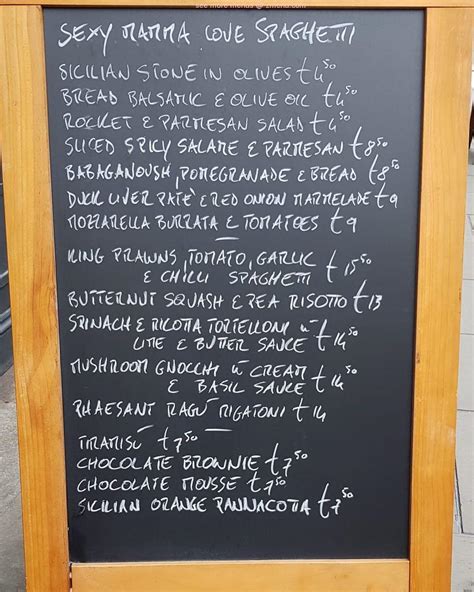 see more menus @ zmenu.com
SEXY MAMMA LOVE SPAGHETTI
SICILIAN STONE IN OLIVES £4.50
BREAD BALSAMIC & OLIVE OIL £4.50
ROCKET & PARMESAN SALAD £4.50
SLICED SPICY SALAME & PARMESAN £8.50
BABAGANOUSH, POMEGRANADE & BREAD £8.50
DUCK LIVER PATÉ & RED ONION MARMELADE £9
MOZZARELLA BURRATA & TOMATOES £9
KING PRAWNS, TOMATO, GARLIC
& CHILLI SPAGHETTI £15.50
BUTTERNUT SQUASH & PEA RISOTTO £13
SPINACH & RICOTTA TORTELLONI W
LIME & BUTTER SAUCE £14.50
MUSHROOM GNOCCHI W CREAM
& BASIL SAUCE £14.50
PHAESANT RAGÚ RIGATONI £14
TIRAMISÚ £7.50
CHOCOLATE BROWNIE £7.50
CHOCOLATE MOUSSE £7.50
SICILIAN ORANGE PANNACOTTA £7.50